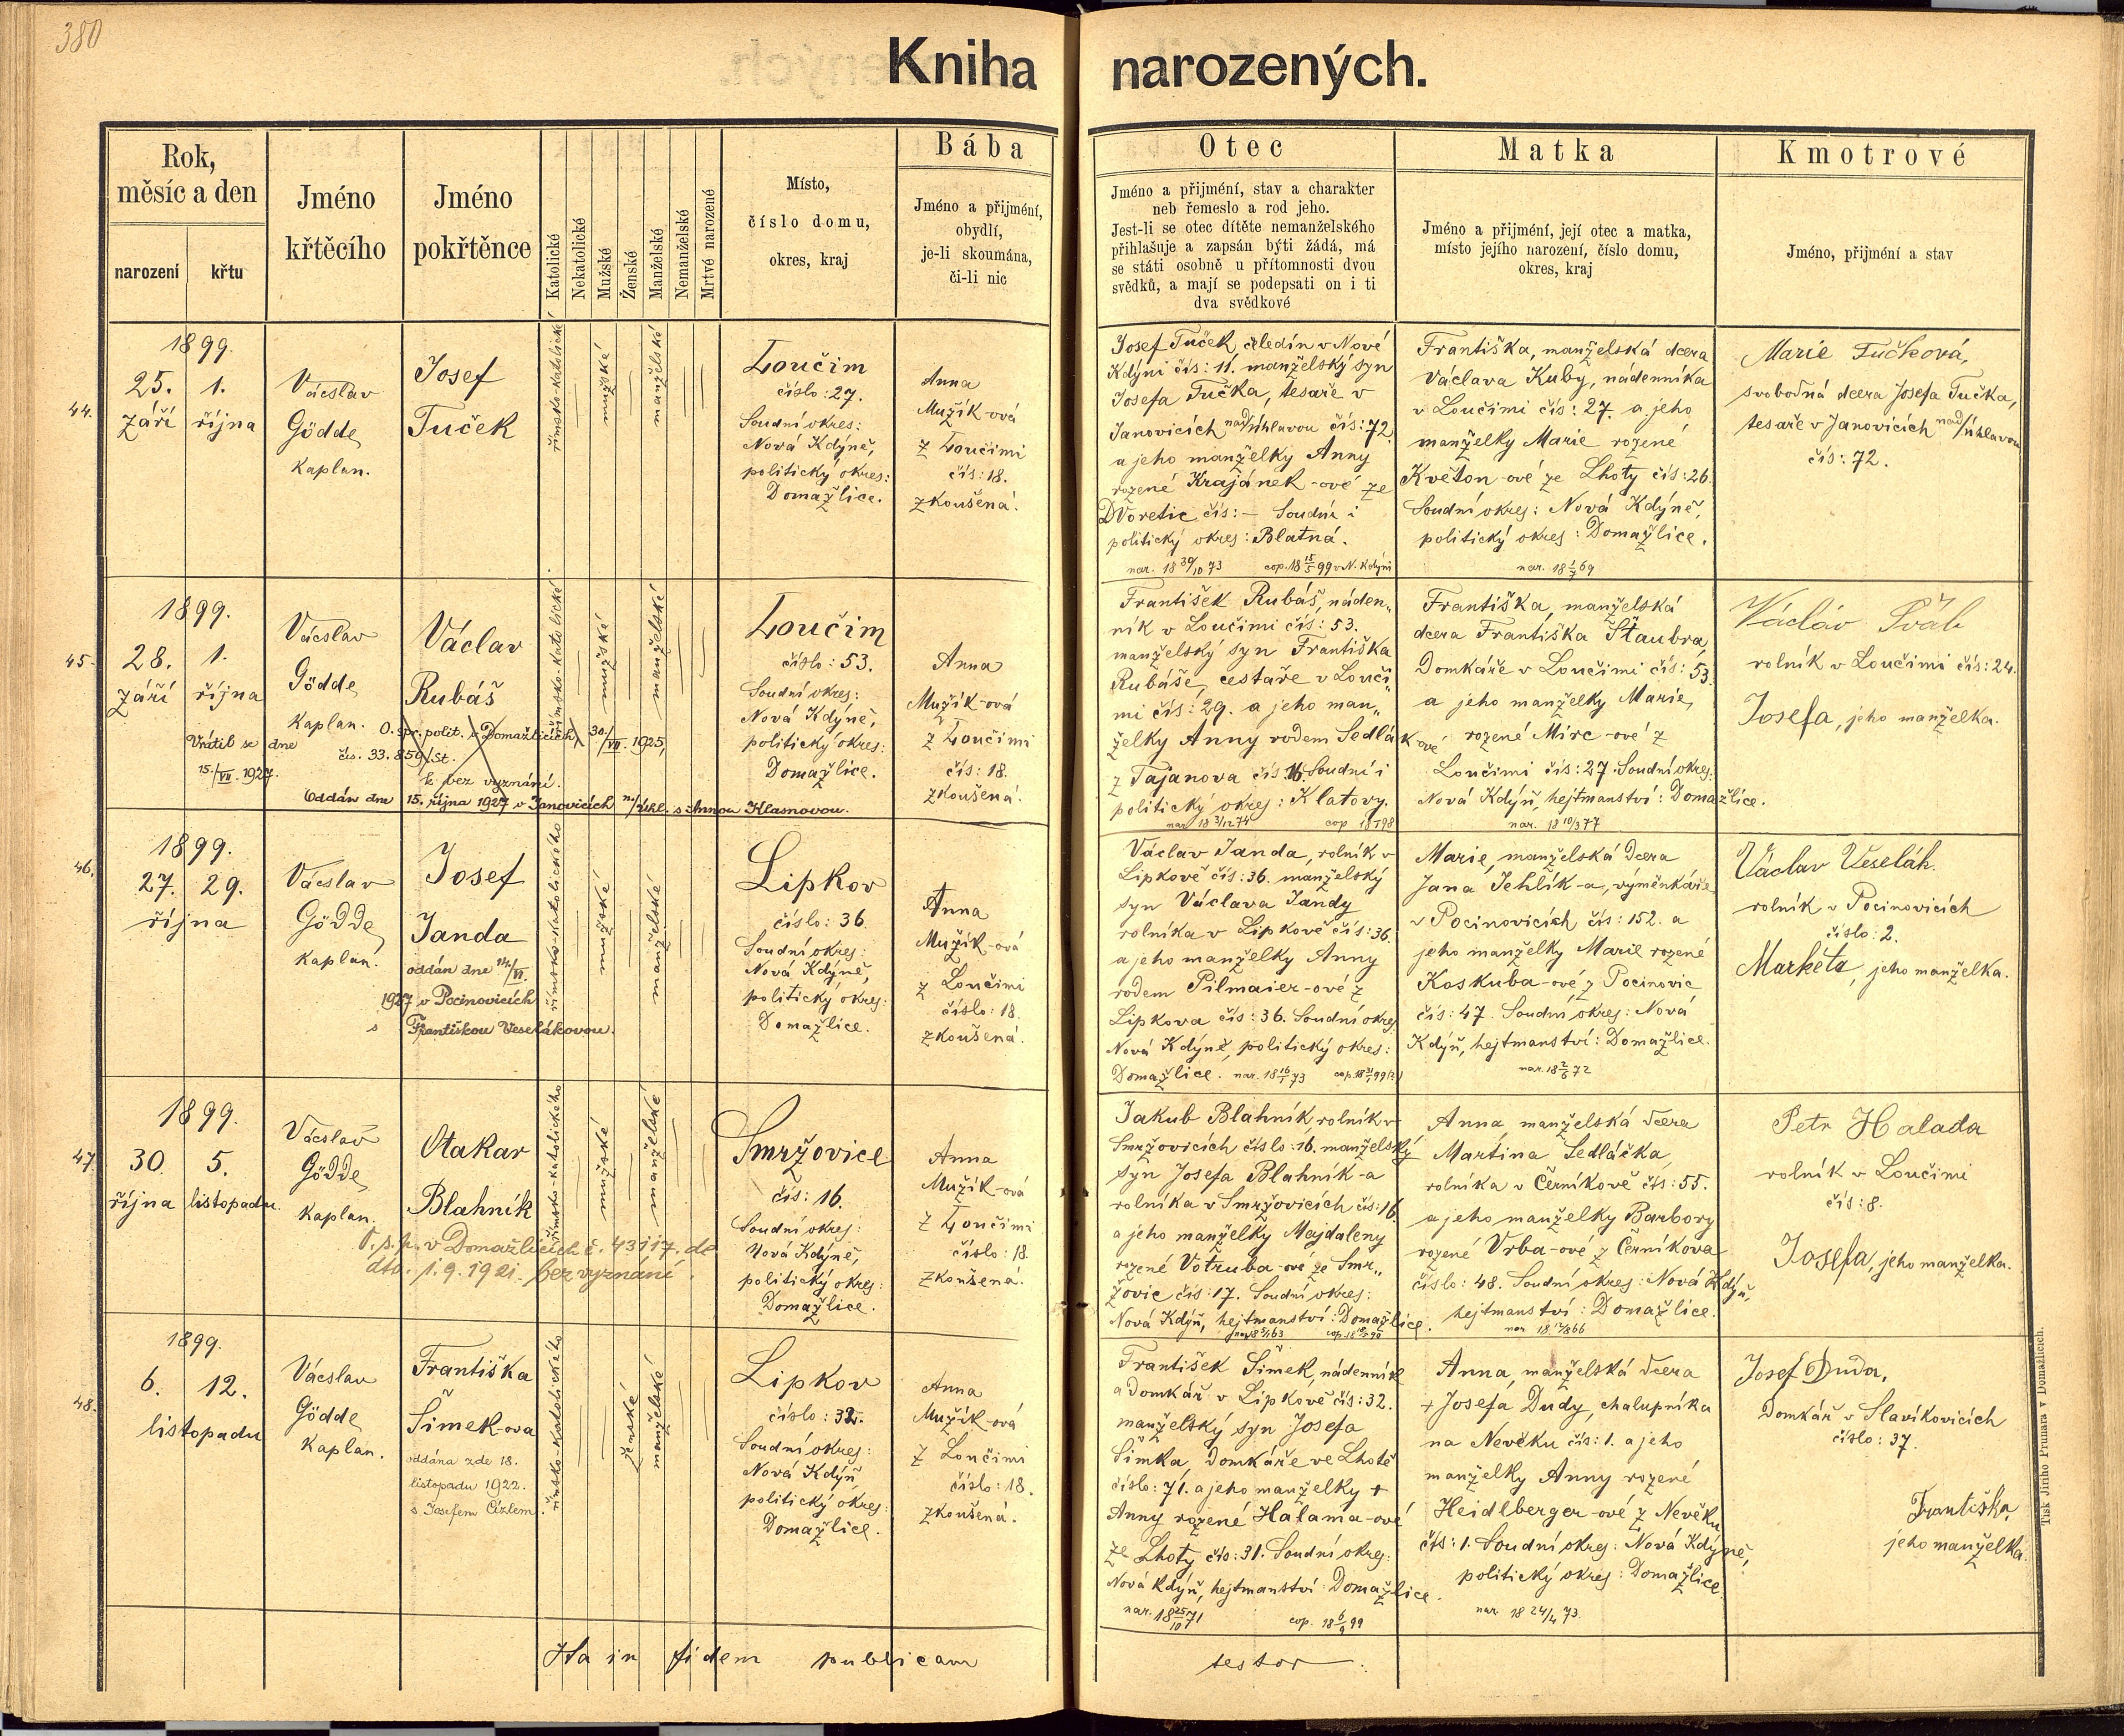 380
Kniha narozených.
Rok,
měsíc a den
narození
křtu
Jméno
křtěcího
Jméno
pokřtěnce
Katolické
Nekatolické
Mužské
Ženské
Manželské
Nemanželské
Mrtvé narozené
Místo,
číslo domu,
okres, kraj
Bába
Jméno a přijmení,
obydlí,
je-li skoumána,
či-li nic
Otec
Jméno a přijmení, stav a charakter
neb řemeslo a rod jeho.
Jest-li se otec dítěte nemanželského
přihlašuje a zapsán býti žádá, má
se státi osobně u přítomnosti dvou
svědků, a mají se podepsati on i ti
dva svědkové
Matka
Jméno a přijmení, její otec a matka,
místo jejího narození, číslo domu,
okres, kraj
Kmotrové
Jméno, přijmení a stav
44.
1899.
25. 1.
září října
Vácslav
Gödde,
kaplan.
Josef
Tuček
římsko-katolické
mužské
manželské
Loučim
číslo: 27.
Soudní okres:
Nová Kdýně,
politický okres:
Domažlice.
Anna
Mužík-ová
z Loučimi
čís: 18.
zkoušená.
Josef Tuček, čeledín v Nové
Kdýni čís: 11. manželský syn
Josefa Tučka, tesaře v
Janovicích nad/Úhlavou čís: 72.
a jeho manželky Anny
rozené Krajánek-ové ze
Dvoretic čís: – Soudní i
politický okres: Blatná.
nar. 18 30/10 73 cop. 18 15/5 99 v N. Kdýni
Františka, manželská dcera
Václava Kuby, nádenníka
v Loučimi čís: 27. a jeho
manželky Marie rozené
Květon-ové ze Lhoty čís: 26.
Soudní okres: Nová Kdýně,
politický okres: Domažlice.
nar. 18 1/7 69
Marie Tučková,
svobodná dcera Josefa Tučka,
tesaře v Janovicích nad/Úhlavou
čís: 72.
45.
1899.
28. 1.
září října
Vácslav
Gödde,
kaplan.
Václav
Rubáš
O. spr. polit. v Domažlicích 30./VII. 1925,
čís. 33.859/St.
k bez vyznání.
Vrátil se dne
15./VII. 1927.
Oddán dne 15. října 1927 v Janovicích n./Úhl. s Annou Hlasnovou.
římsko-katolické
mužské
manželské
Loučim
číslo: 53.
Soudní okres:
Nová Kdýně,
politický okres:
Domažlice.
Anna
Mužík-ová
z Loučimi
čís: 18.
zkoušená.
František Rubáš, náden„
ník v Loučimi čís: 53.
manželský syn Františka
Rubáše, cestaře v Louči„
mi čís: 29. a jeho man„
želky Anny rodem Sedlák-ové
z Tajanova čís 16. Soudní i
politický okres: Klatovy.
nar. 18 3/12 74
Františka, manželská
dcera Františka Štaubra,
Domkáře v Loučimi čís: 53.
a jeho manželky Marie,
rozené Mirc-ové z
Loučimi čís: 27. Soudní okres:
Nová Kdýň, hejtmanství: Domažlice.
nar. 18 10/3 77
Václav Šváb
rolník v Loučimi čís: 24.
Josefa, jeho manželka.
46.
1899.
27. 29.
října
Vácslav
Gödde,
kaplan.
Josef
Janda
oddán dne 14./VI.
1927 v Pocinovicích
s Františkou Veselákovou.
římsko-katolického
mužské
manželské
Lipkov
číslo: 36.
Soudní okres:
Nová Kdýně,
politický okres:
Domažlice.
Anna
Mužík-ová
z Loučimi
číslo: 18.
zkoušená.
Václav Janda, rolník v
Lipkově čís: 36. manželský
syn Václava Jandy
rolníka v Lipkově čís: 36.
a jeho manželky Anny
rodem Pilmaier-ové z
Lipkova čís: 36. Soudní okres
Nová Kdýně, politický okres:
Domažlice.
Marie, manželská dcera
Jana Jehlík-a, výměnkáře
v Pocinovicích čís: 152. a
jeho manželky Marie rozené
Koskuba-ové z Pocinovic
čís: 47. Soudní okres: Nová
Kdýň, hejtmanství: Domažlice.
nar. 18 2/6 72
Václav Veselák.
rolník v Pocinovicích
číslo: 2.
Markéta, jeho manželka.
47.
1899.
30. 5.
října listopadu.
Vácslav
Gödde,
kaplan.
Otakar
Blahník
O. s. p. v Domažlicích č. 43117. de
dto. 1.9.1921. bez vyznání.
římsko-katolického
mužské
manželské
Smržovice
čís: 16.
Soudní okres:
Nová Kdýně,
politický okres:
Domažlice.
Anna
Mužík-ová
z Loučimi
číslo: 18.
zkoušená.
Jakub Blahník, rolník v
Smržovicích číslo: 16. manželský
syn Josefa Blahník-a
rolníka v Smržovicích čís: 16.
a jeho manželky Majdaleny
rozené Votruba-ové ze Smr„
žovic čís: 17. Soudní okres:
Nová Kdýň, hejtmanství: Domažlice.
Anna, manželská dcera
Martina Sedláčka,
rolníka v Černíkově čís: 55.
a jeho manželky Barbory
rozené Vrba-ové z Černíkova
číslo: 48. Soudní okres: Nová Kdýň,
hejtmanství: Domažlice.
Petr Halada
rolník v Loučimi
čís: 8.
Josefa, jeho manželka.
48.
1899.
6. 12.
listopadu
Vácslav
Gödde,
kaplan.
Františka
Šimek-ova
oddána zde 18.
listopadu 1922.
s Josefem Cízlem.
římsko-katolického
ženské
manželské
Lipkov
číslo: 32.
Soudní okres:
Nová Kdýň,
politický okres:
Domažlice.
Anna
Mužík-ová
z Loučimi
číslo: 18.
zkoušená.
František Šimek, nádenník
a Domkář v Lipkově čís: 32.
manželský syn Josefa
Šimka, Domkáře ve Lhotě
číslo: 71. a jeho manželky +
Anny rozené Halama-ové
ze Lhoty čís: 31. Soudní okres:
Nová Kdýň, hejtmanství: Domažlice.
nar. 18 25/10 71 cop. 18 6/9 99
Anna, manželská dcera
+ Josefa Dudy, chalupníka
na Nevěku čís: 1. a jeho
manželky Anny rozené
Heidlberger-ové z Nevěku
čís: 1. Soudní okres: Nová Kdýně,
politický okres: Domažlice.
nar. 18 24/4 73.
Josef Duda,
Domkář v Slavíkovicích
číslo: 37.
Františka,
jeho manželka.
Ita in fidem publicam testor
Tisk Jiřího Prunara v Domažlicích.